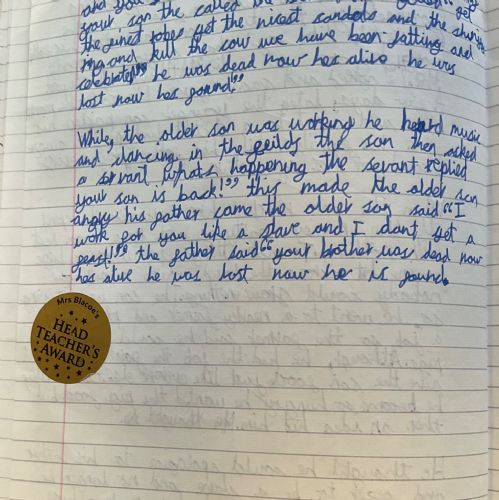 and you
your son the called the
the finest robes get the nicest sandels and the shinyest
ring and kill the cow we have been fatting and
celebrate" he was dead now hes alive he was
lost now hes found!"
While, the older son was working he heard music
and dancing in the feilds the son then asked
a servant whats happening the sevant replied
your son is back!" this made the older son
angry his father came the older son said "I
work for you like a slave and I dont get a
feast!" the father said "your brother was dead now
hes alive he was lost now he is found.
Mrs Blacoe's
HEAD
TEACHER'S
AWARD